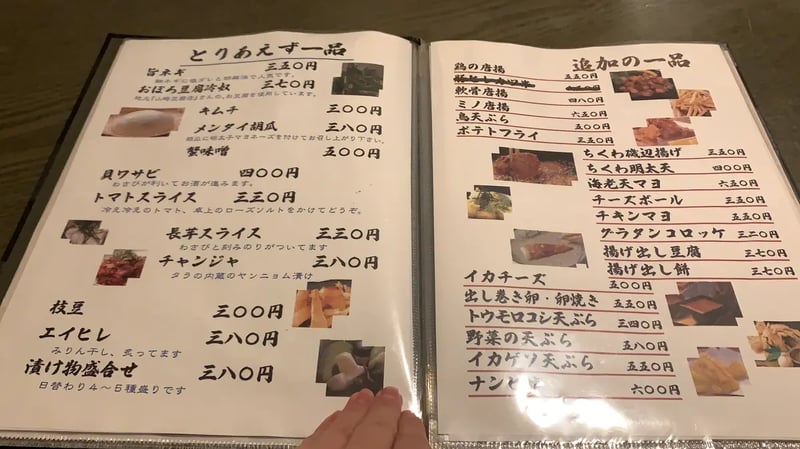 とりあえず一品
旨ネギ 三五〇円
おぼろ豆腐冷奴 三七〇円
キムチ 三〇〇円
メンタイ胡瓜 三八〇円
蟹味噌 五〇〇円
貝ワサビ 四〇〇円
わさびが利いてお酒が進みます。
トマトスライス 三三〇円
冷え冷えのトマト、卓上のローズソルトをかけてどうぞ。
長芋スライス 三三〇円
わさびと刻みのりがついてます
チャンジャ 三八〇円
タラの内蔵のヤンニョム漬け
枝豆 三〇〇円
エイヒレ 三八〇円
みりん干し、炙ってます
漬け物盛合せ 三八〇円
日替わり4~5種盛りです
追加の一品
鶏の唐揚 五五〇円
軟骨唐揚 四八〇円
ミノ唐揚 六五〇円
鳥天ぷら 五〇〇円
ポテトフライ 三五〇円
ちくわ磯辺揚げ 三五〇円
ちくわ明太天 四〇〇円
海老天マヨ 六五〇円
チーズボール 三五〇円
チキンマヨ 五五〇円
グラタンコロッケ 三二〇円
揚げ出し豆腐 三七〇円
揚げ出し餅 三七〇円
イカチーズ 五〇〇円
出し巻き卵・卵焼き 五五〇円
トウモロコシ天ぷら 三四〇円
野菜の天ぷら 五八〇円
イカゲソ天ぷら 五五〇円
六〇〇円